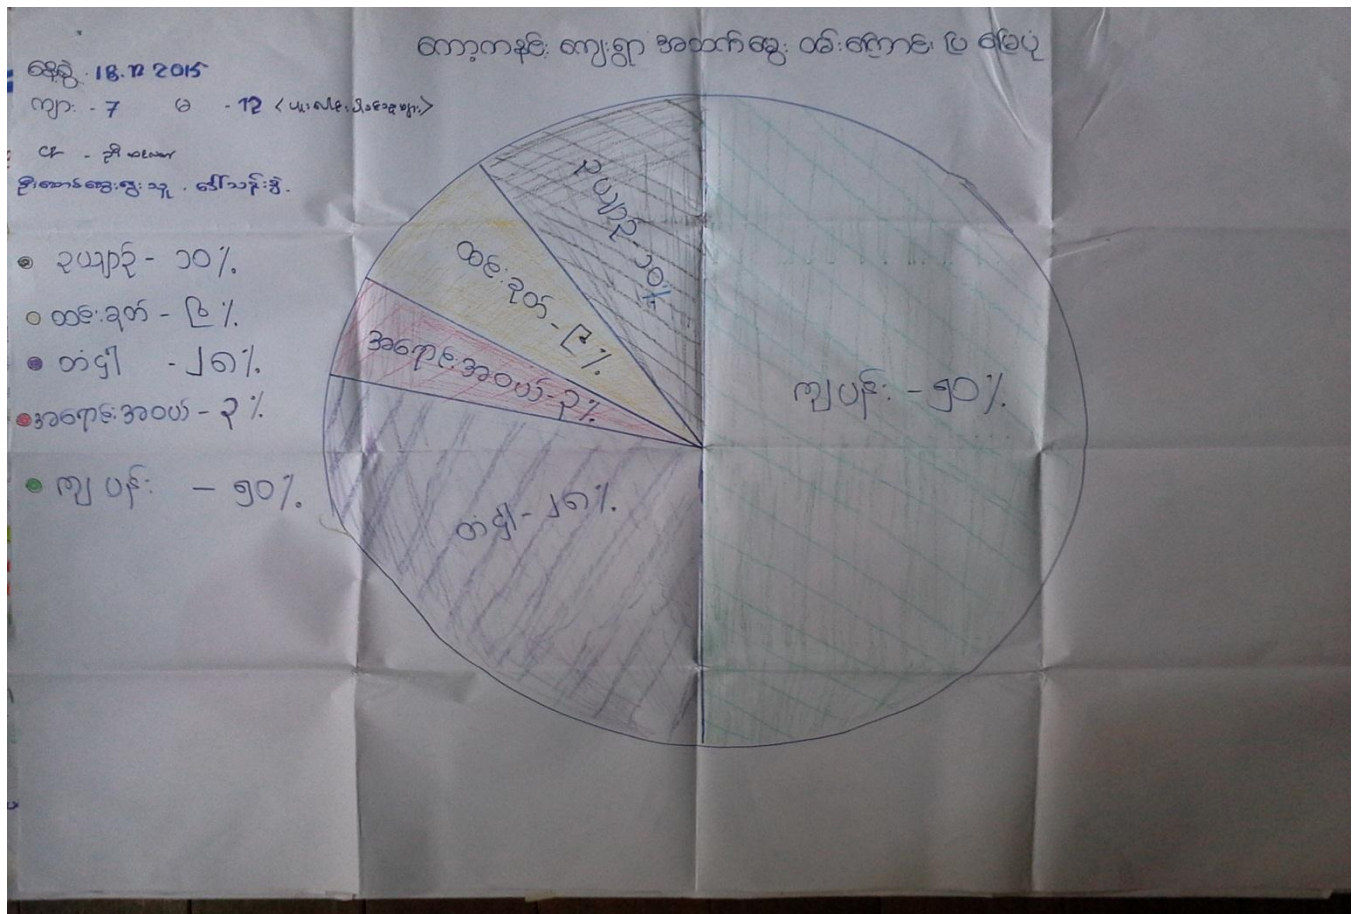 ကော့ကနင်း ကျေးရွာ အသက်မွေး ဝမ်းကြောင်း ပြ မြေပုံ
နေ့စွဲ . 18.12 2015
ကျား - 7 မ - 12
CF -
ဦးဆောင်ဆွေးနွေးသူ . ဒေါ်သန်းနွဲ့.
ဥယျာဉ် - ၁၀%
ထင်းခုတ် - ၉%
တံငါ - ၂၈%
အရောင်းအဝယ် - ၃%
ကျပန်း - ၅၀%
ဥယျာဉ် - ၁၀%
ထင်းခုတ် - ၉%
အရောင်းအဝယ် - ၃%
တံငါ - ၂၈%
ကျပန်း - ၅၀%